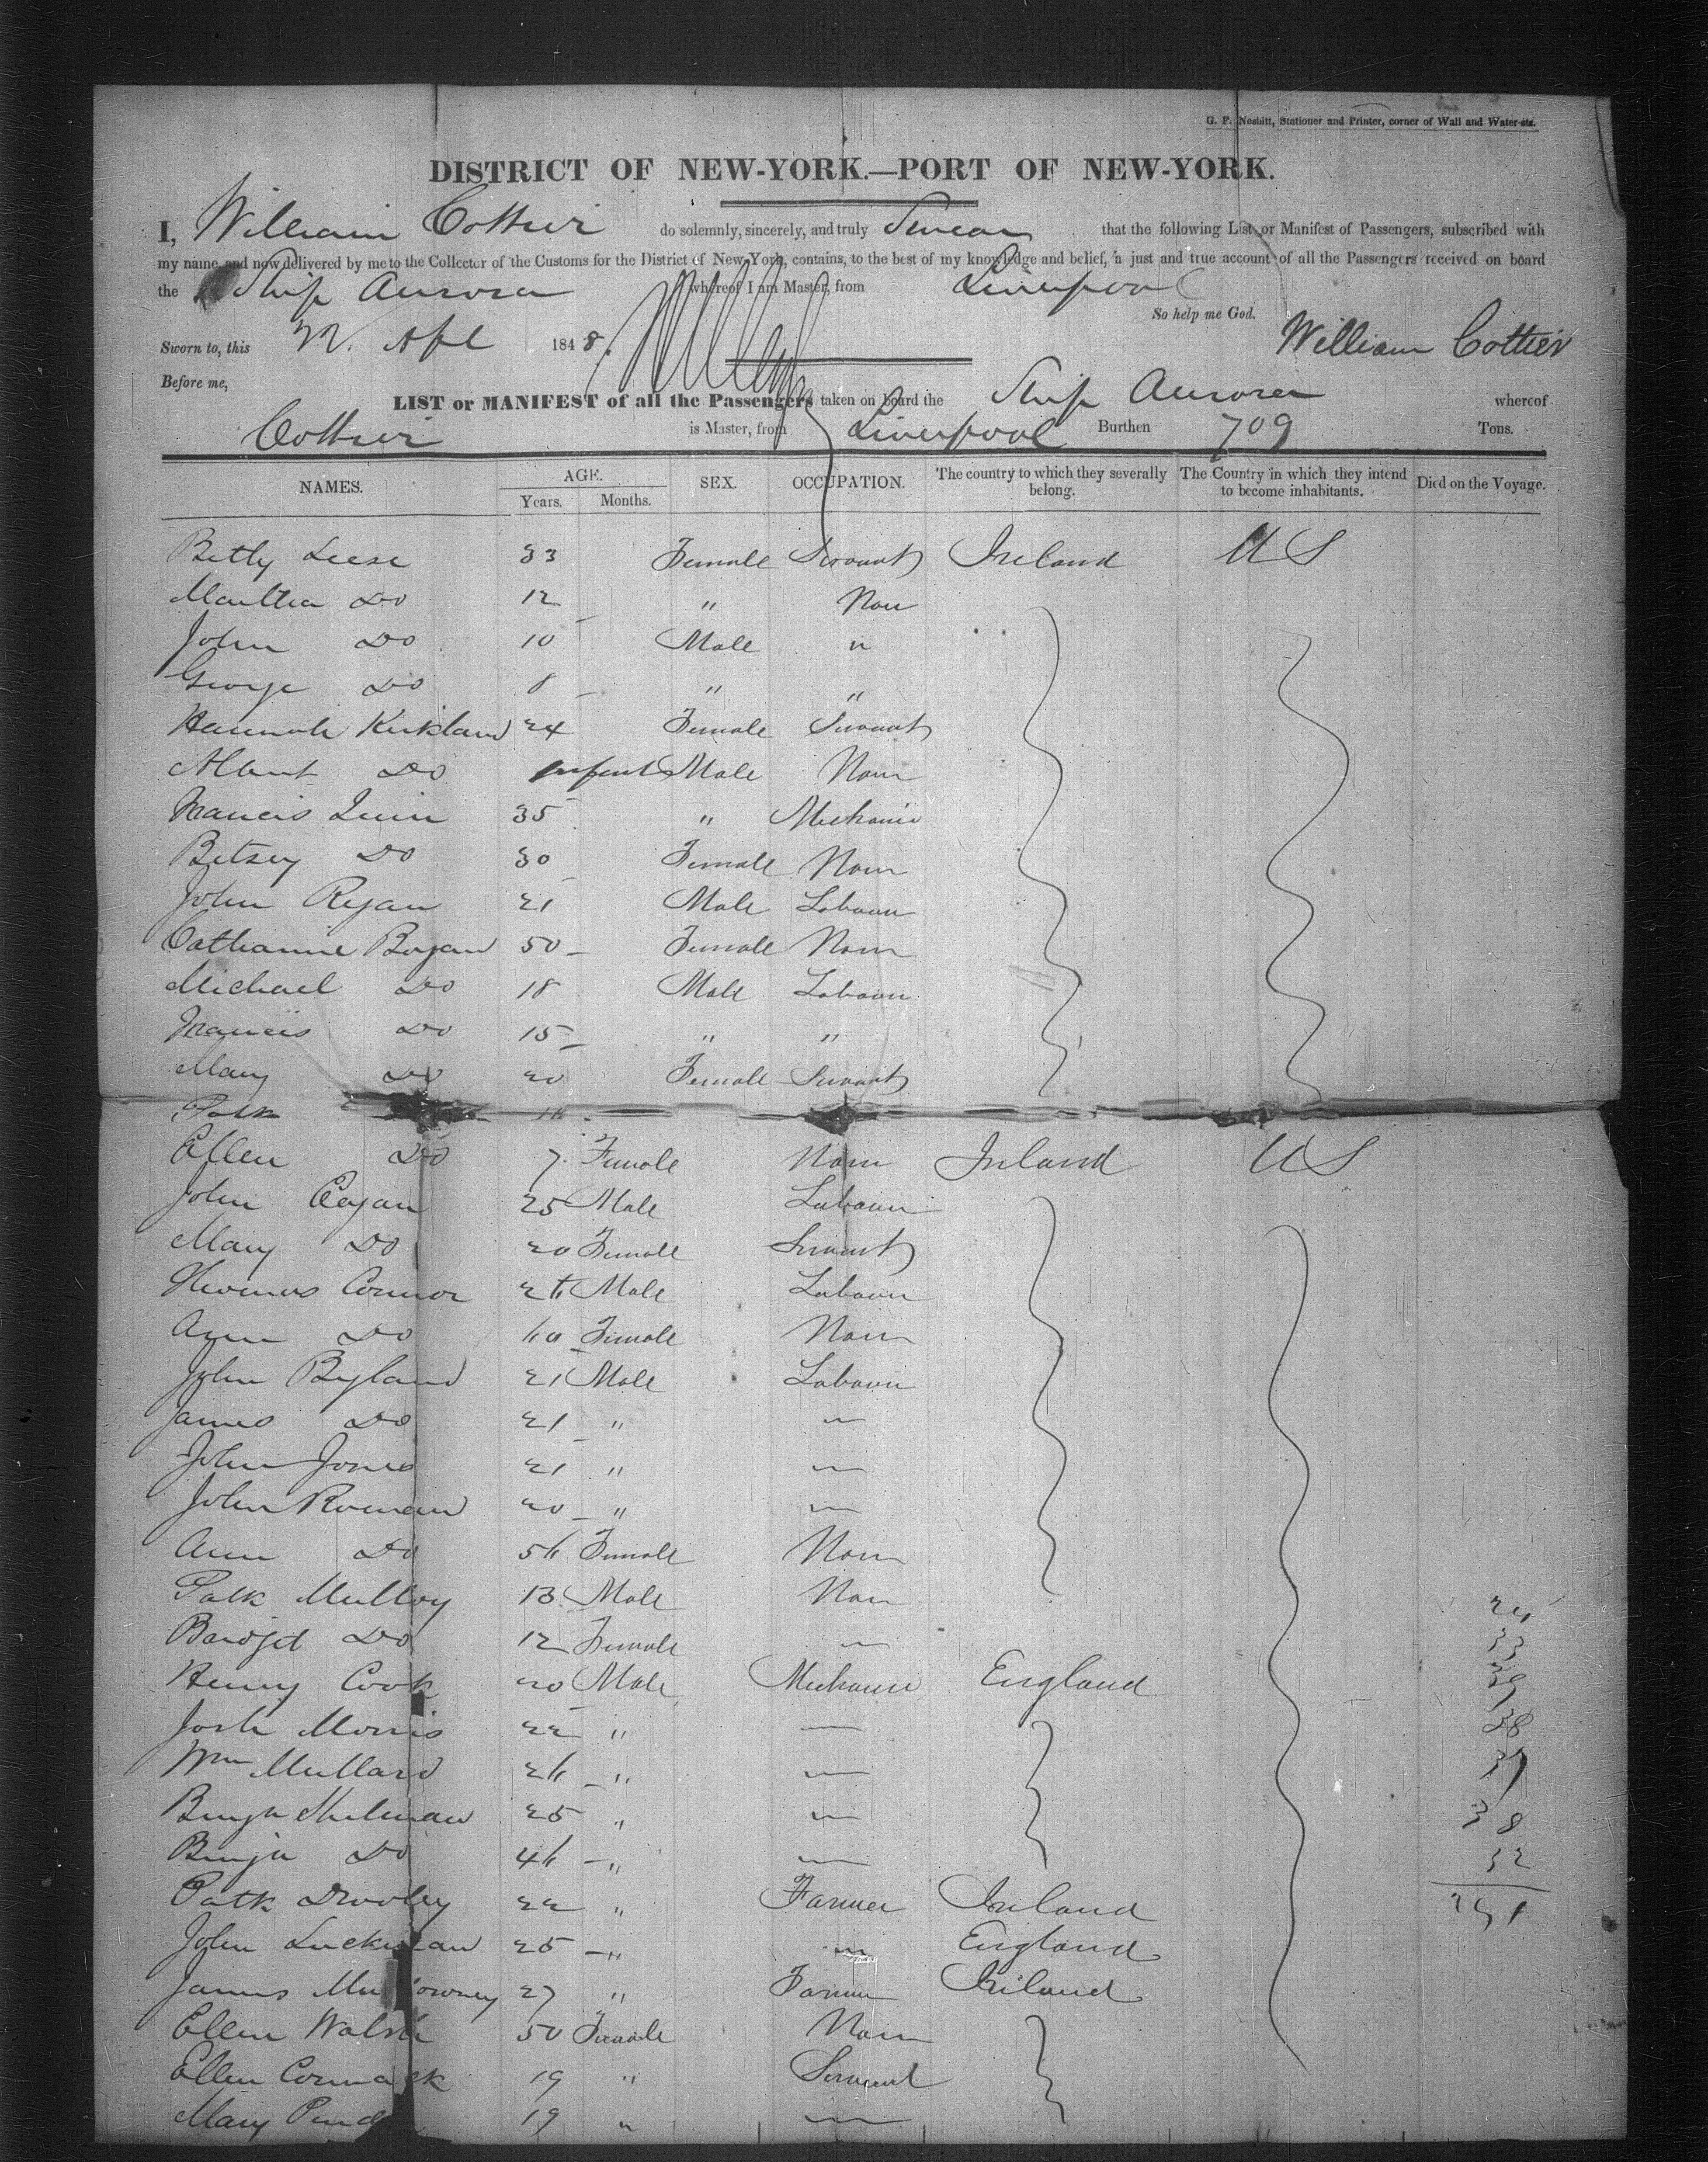 G. F. Nesbitt, Stationer and Printer, corner of Wall and Water-sts.
DISTRICT OF NEW-YORK.—PORT OF NEW-YORK.
I, William Cottier do solemnly, sincerely, and truly Swear that the following List or Manifest of Passengers, subscribed with
my name and now delivered by me to the Collector of the Customs for the District of New-York, contains, to the best of my knowledge and belief, a just and true account of all the Passengers received on board
the Ship Aurora whereof I am Master, from Liverpool
So help me God.
Sworn to, this Apl 1848. William Cottier
Before me,
LIST or MANIFEST of all the Passengers taken on board the Ship Aurora whereof
Cottier is Master, from Liverpool Burthen 709 Tons.
NAMES. AGE. SEX. OCCUPATION. The country to which they severally belong. The Country in which they intend to become inhabitants. Died on the Voyage.
Years. Months.
Betty Leese 33 Female Servant Ireland U S
Martha Do 12 " Non
John Do 10 Male "
George Do 8 " "
Hannah Kirkland 24 Female Servant
Albert Do Infant Male Non
Francis Quin 35 " Mechanic
Betsey Do 30 Female Non
John Ryan 21 Male Labour
Catharine Bogan 50 Female Non
Michael Do 18 Male Labour
Francis Do 15 " "
Mary Do 20 Female Servant
Patk
Ellen Do 7 Female Non Ireland U S
John Eagan 25 Male Labour
Mary Do 20 Female Servant
Thomas Connor 26 Male Labour
Ann Do 60 Female Non
John Byland 21 Male Labour
James Do 21 "
John Jones 21 "
John Rowan 20 "
Ann Do 56 Female Non
Patk Mulloy 13 Male Non
Bridget Do 12 Female
Henry Cook 20 Male Mechanic England
Josh Morris 22 "
Wm Mullard 26 "
Benjn 25 "
Benjn Do 46 "
Patk Dooley 22 " Farmer Ireland
John Luckman 25 " " England
James 27 " Farmer Ireland
Ellen Walsh 50 Female Non
Ellen Cormack 19 " Servant
Mary 19 "
33
39
38
37
38
32
251